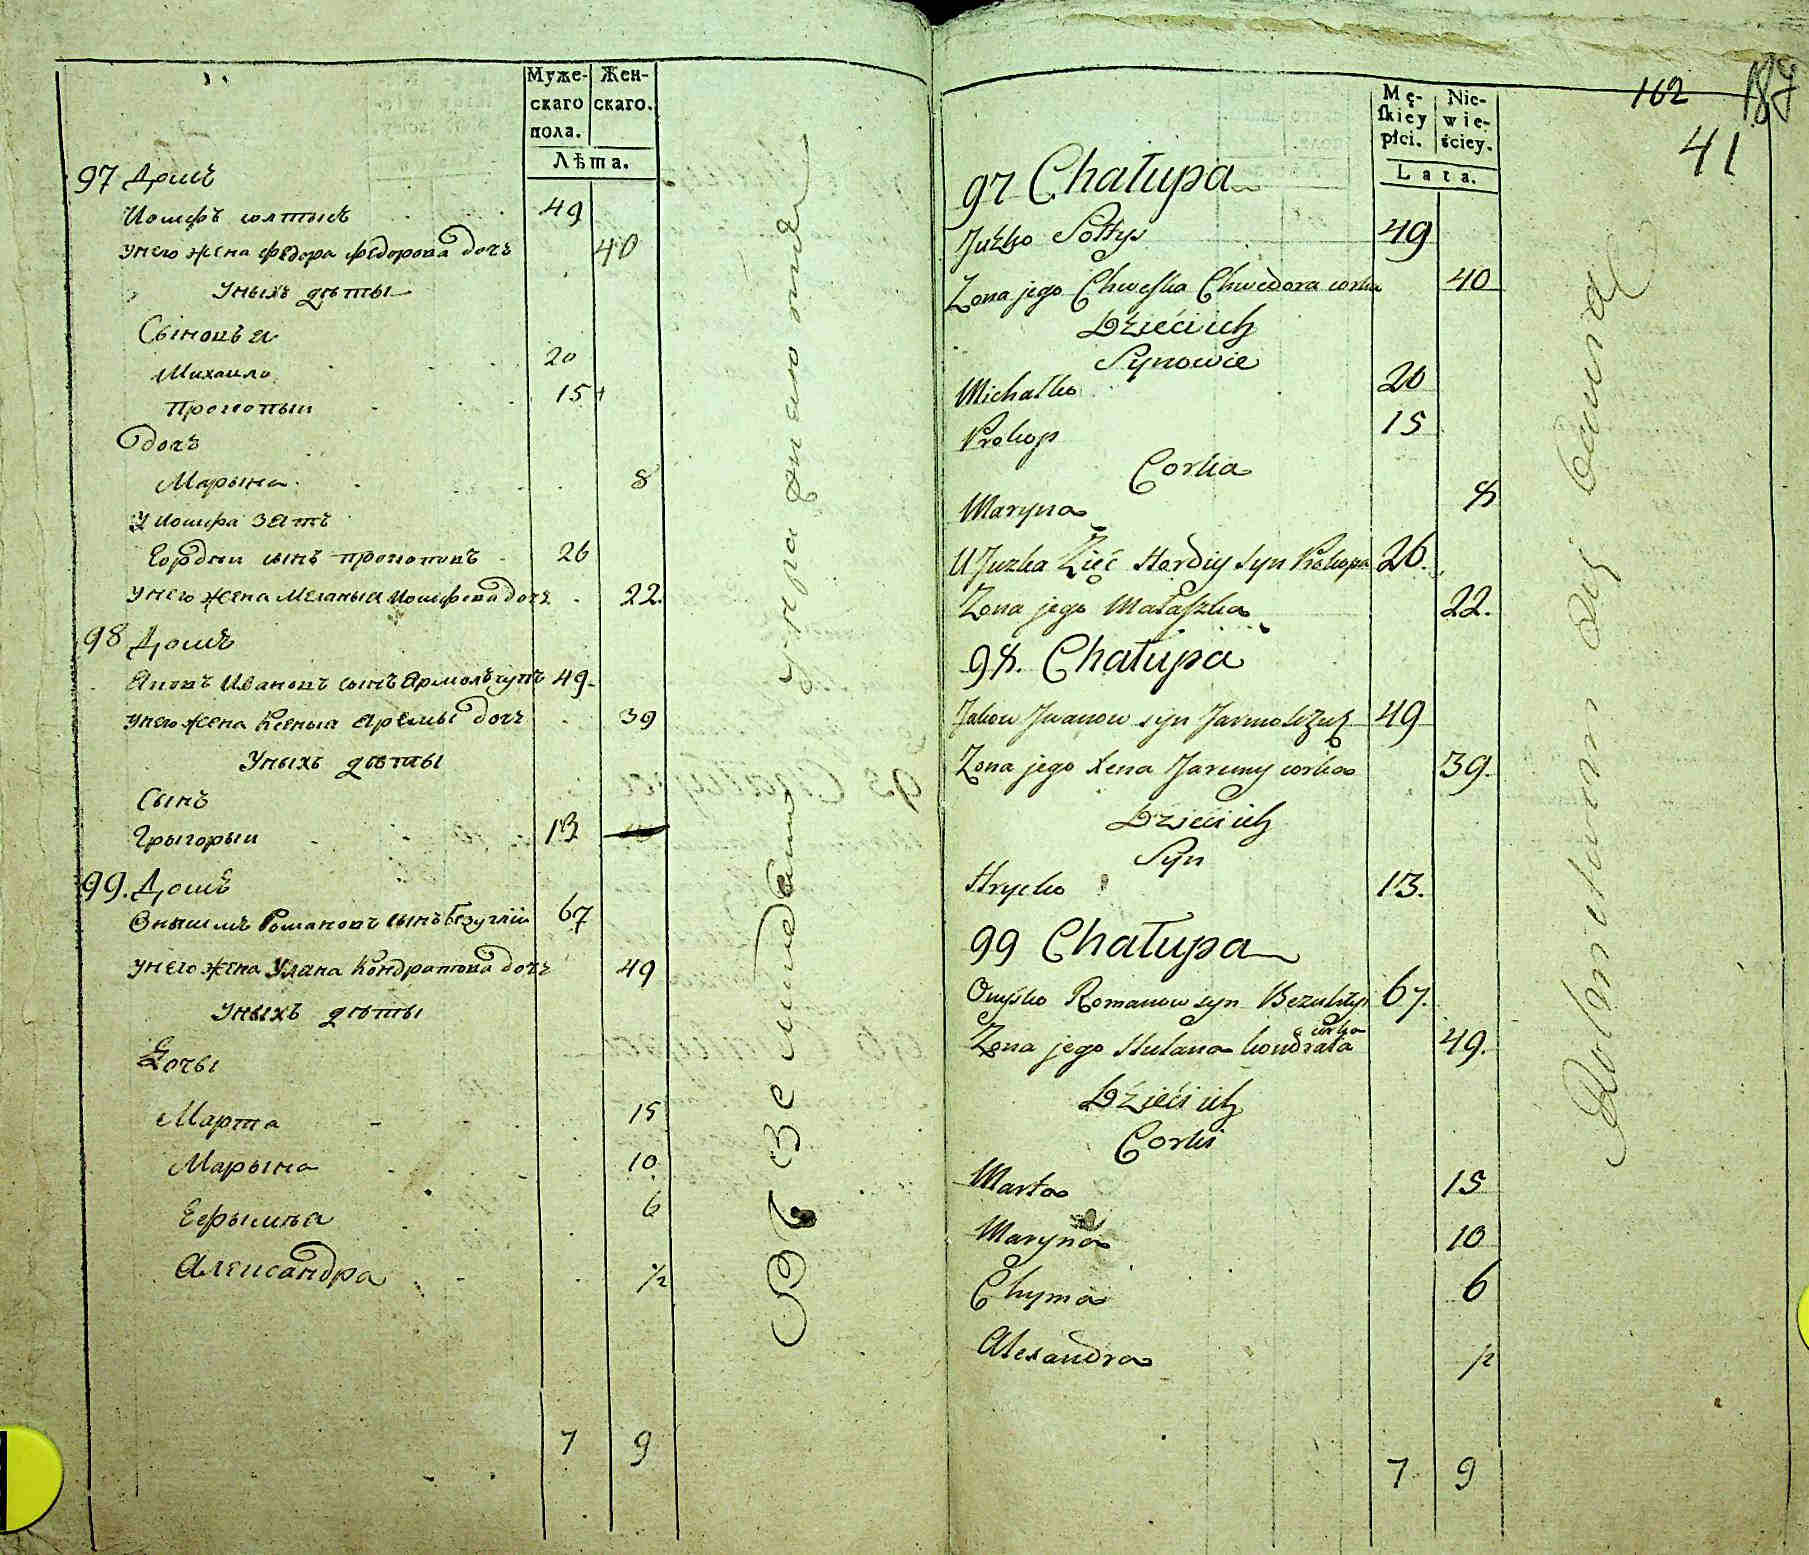 Муже-
скаго
пола.
Жен-
скаго.
Лѣта.
97 Домъ
Иосифъ солтысъ 49
унего жена Федора Федорова дочь 40
Уныхъ дѣты
Сыновья
Михаило 20
Прокопыи 15
дочь
Марына 8
У Иосифа зять
Гордѣи сынъ прокоповъ 26
унего жена Меланыя Иосифова дочь 22.
98 Домъ
Яковъ Ивановъ сынъ Ярмольчукъ 49
унего жена Ксеныя Яремы дочь 39
Уныхъ дѣты
Сынъ
Грыгорыи 13
99. Домъ
Онысимъ Романовъ сынъ Безуглыи 67
унего жена Улана Кондратова дочь 49
Уныхъ дѣты
Дочы
Марта 15
Марына 10
Ефымыя 6
Александра 1/2
7 9
162
187
41
Mę-
skiey
płci.
Nie-
wie-
ściey.
Lata.
97 Chałupa
Juzko Sołtys 49
Zona jego Chweska Chwedora corka 40
Dzieci ich
Synowie
Michałko 20
Prokop 15
Corka
Maryna 8
U Juzka Zięć Hordiy syn Prokopa 26.
Zona jego Małaszka 22.
98. Chałupa
Jakow Jwanow syn Jarmolczuk 49
Zona jego Xena Jaremy corka 39.
Dzieci ich
Syn
Hrycko 13.
99 Chałupa
Onyśko Romanow syn Bezuhły 67.
Zona jego Hulana kondrata corka 49.
Dzieci ich
Corki
Marta 15
Maryna 10
Chyma 6
Alexandra 1/2
7 9